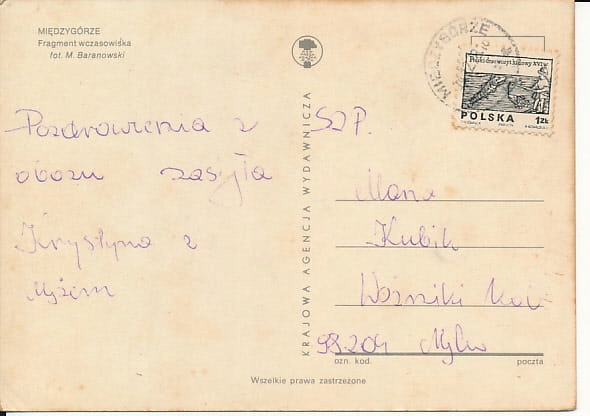 MIĘDZYGÓRZE
Fragment wczasowiska
fot. M. Baranowski
Pozdrowienia z
obozu zasyła
Krystyna z
Mężem
KRAJOWA AGENCJA WYDAWNICZA
MIĘDZYGÓRZE
Polski drzeworyt ludowy XVI w.
POLSKA 1zł
Sz.P.
Maria
Kubik
Woźniki
ozn. kod. poczta
Wszelkie prawa zastrzeżone